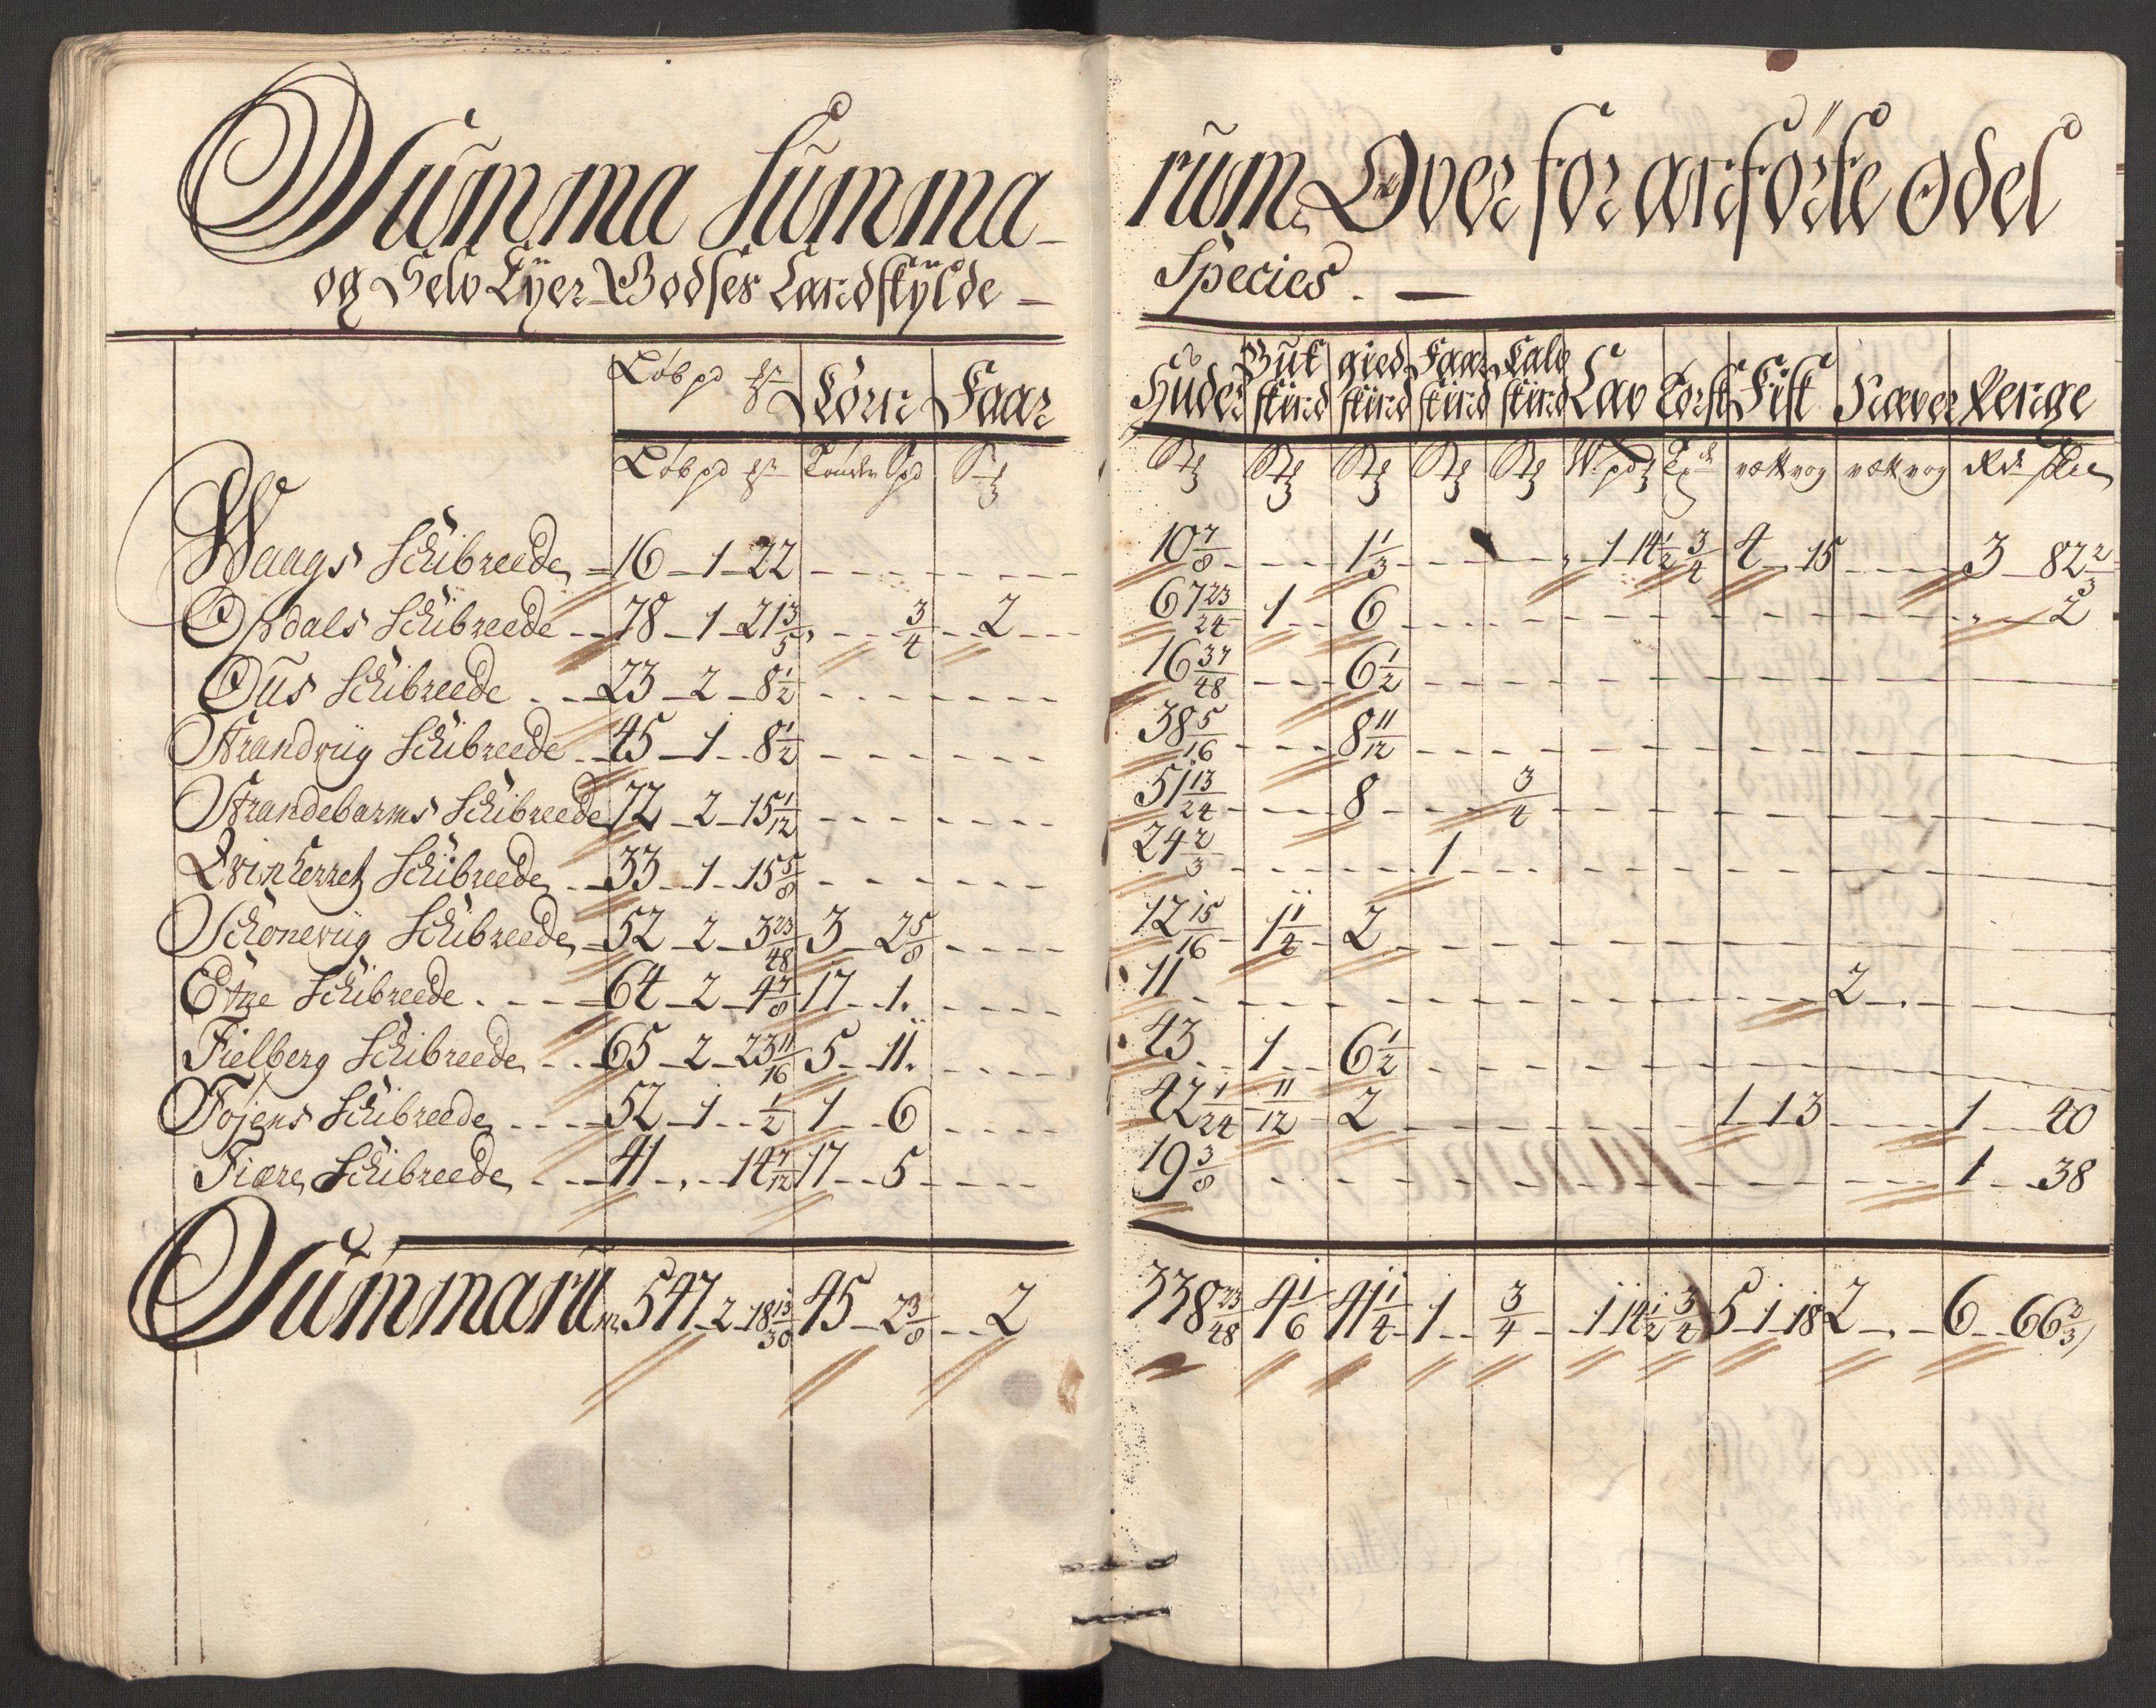 Summa Summa-rum Over for anförte Odel
og Selv Eyer Godses Landskylde - Species. -
Löb pd Korn Faar Huder Buk skind gied skind Faar skind Kalv skind Lav Torsk Fisk Næver Penge
Löb pd Tönder Spd Stz Stz Stz Stz Stz Stz W. pdz vætt vog vætt vog Rd. sk
Waags Schibreede 16 - 1 - 22 10 7/8 1 1/3 1 14 1/2 3/4 4 " 15 3 - 82 2/3
Opdals Schibreede 78 - 1 - 21 3/5 " 3/4 2 67 23/24 1 6 " 2
Ous Schibreede 23 - 2 - 8 1/2 16 37/48 6 1/2
Strandviig Schibreede 45 - 1 - 8 1/2 38 5/16 8 11/12
Strandebarms Schibreede 72 - 2 - 15 1/12 51 13/24 8 3/4
Qvinherret Schibreede 33 - 1 - 15 5/8 24 2/3 1
Schoneviig Schibreede 52 - 2 - 3 23/48 3 - 2 5/8 12 15/16 1 1/4 2
Etne Schibreede 64 - 2 - 4 7/8 17 - 1. 11 2 "
Fielberg Schibreede 65 - 2 - 23 11/16 5 - 11. 43 1 6 1/2
Föjens Schibreede 52 - 1 - 1/2 1 - 6 42 1/24 11/12 2 1 1 3 1 - 40
Fiære Schibreede 41 - " - 14 7/12 17 - 5 19 3/8 1 - 38
Summarum 547 - 2 - 18 13/30 45 - 2 3/8 2 338 23/48 4 1/6 41 1/4 1 3/4 1 14 1/2 3/4 5 - 1 - 18 2 " 6 - 66 2/3